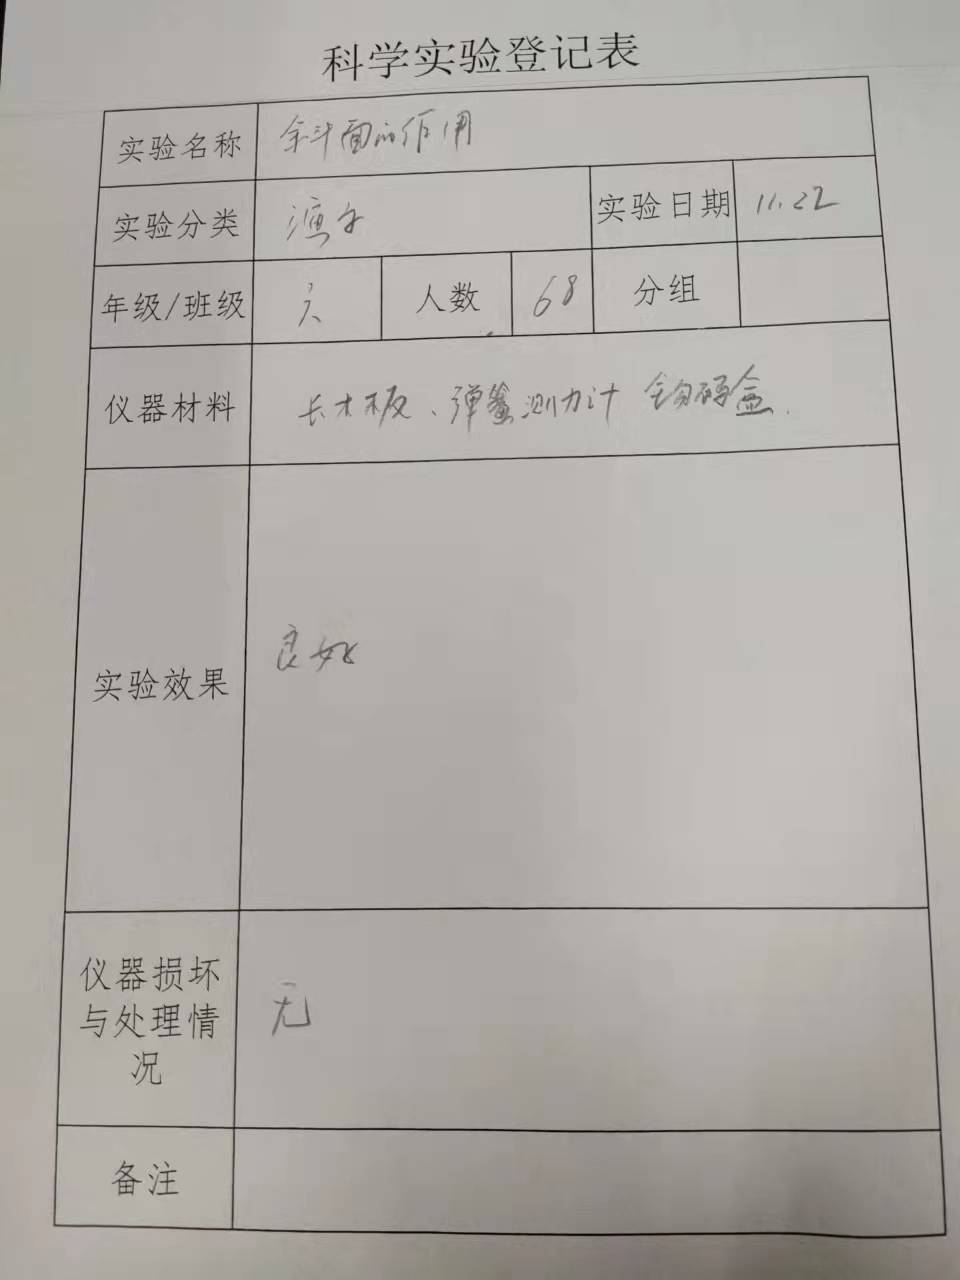 科学实验登记表
实验名称 斜面的作用
实验分类 演示 实验日期 11.22
年级/班级 六 人数 68 分组
仪器材料 长木板、弹簧测力计 钩码盒.
实验效果 良好
仪器损坏
与处理情
况 无
备注